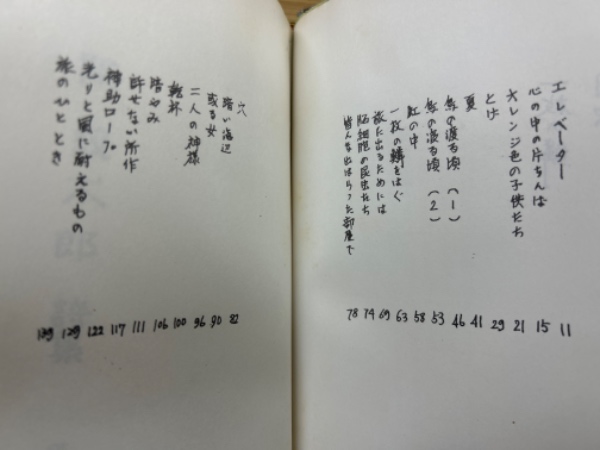 エレベーター
心の中の片ちんは
オレンジ色の子供たち
とげ
夏
魚の渡る頃(1)
魚の渡る頃(2)
虹の中
一枚の鱗をはぐ
旅に出るためには
脳細胞の昆虫たち
皆んな出はらった部屋で
11
15
21
29
41
46
53
58
63
69
74
78
穴
暗い海辺
或る女
二人の神様
乾杯
皆のみ
許せない所作
補助ロープ
光りと風に耐えるもの
旅のひととき
82
90
96
100
106
111
117
122
129
139